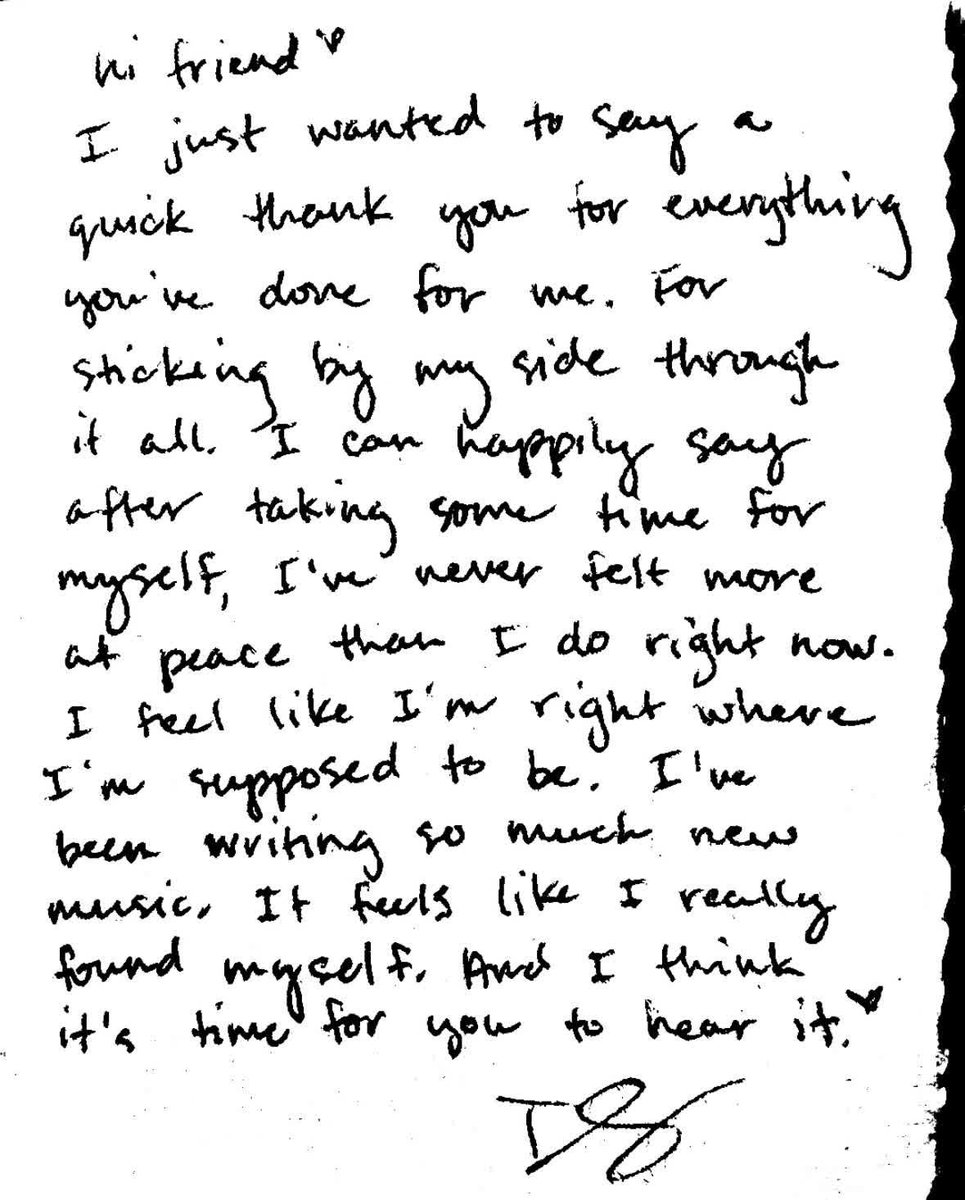 hi friend
I just wanted to say a
quick thank you for everything
you've done for me. For
sticking by my side through
it all. I can happily say
after taking some time for
myself, I've never felt more
at peace than I do right now.
I feel like I'm right where
I'm supposed to be. I've
been writing so much new
music. It feels like I really
found myself. And I think
it's time for you to hear it.